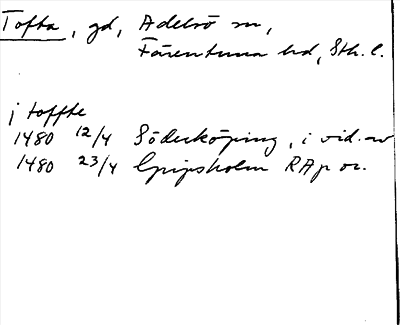 Tofta, gd, Adelsö sn,
Färentuna hd, Sth. l.
j toffte
1480 12/4 Söderköping, i vid. av
1480 23/4 Gripsholm RAp or.